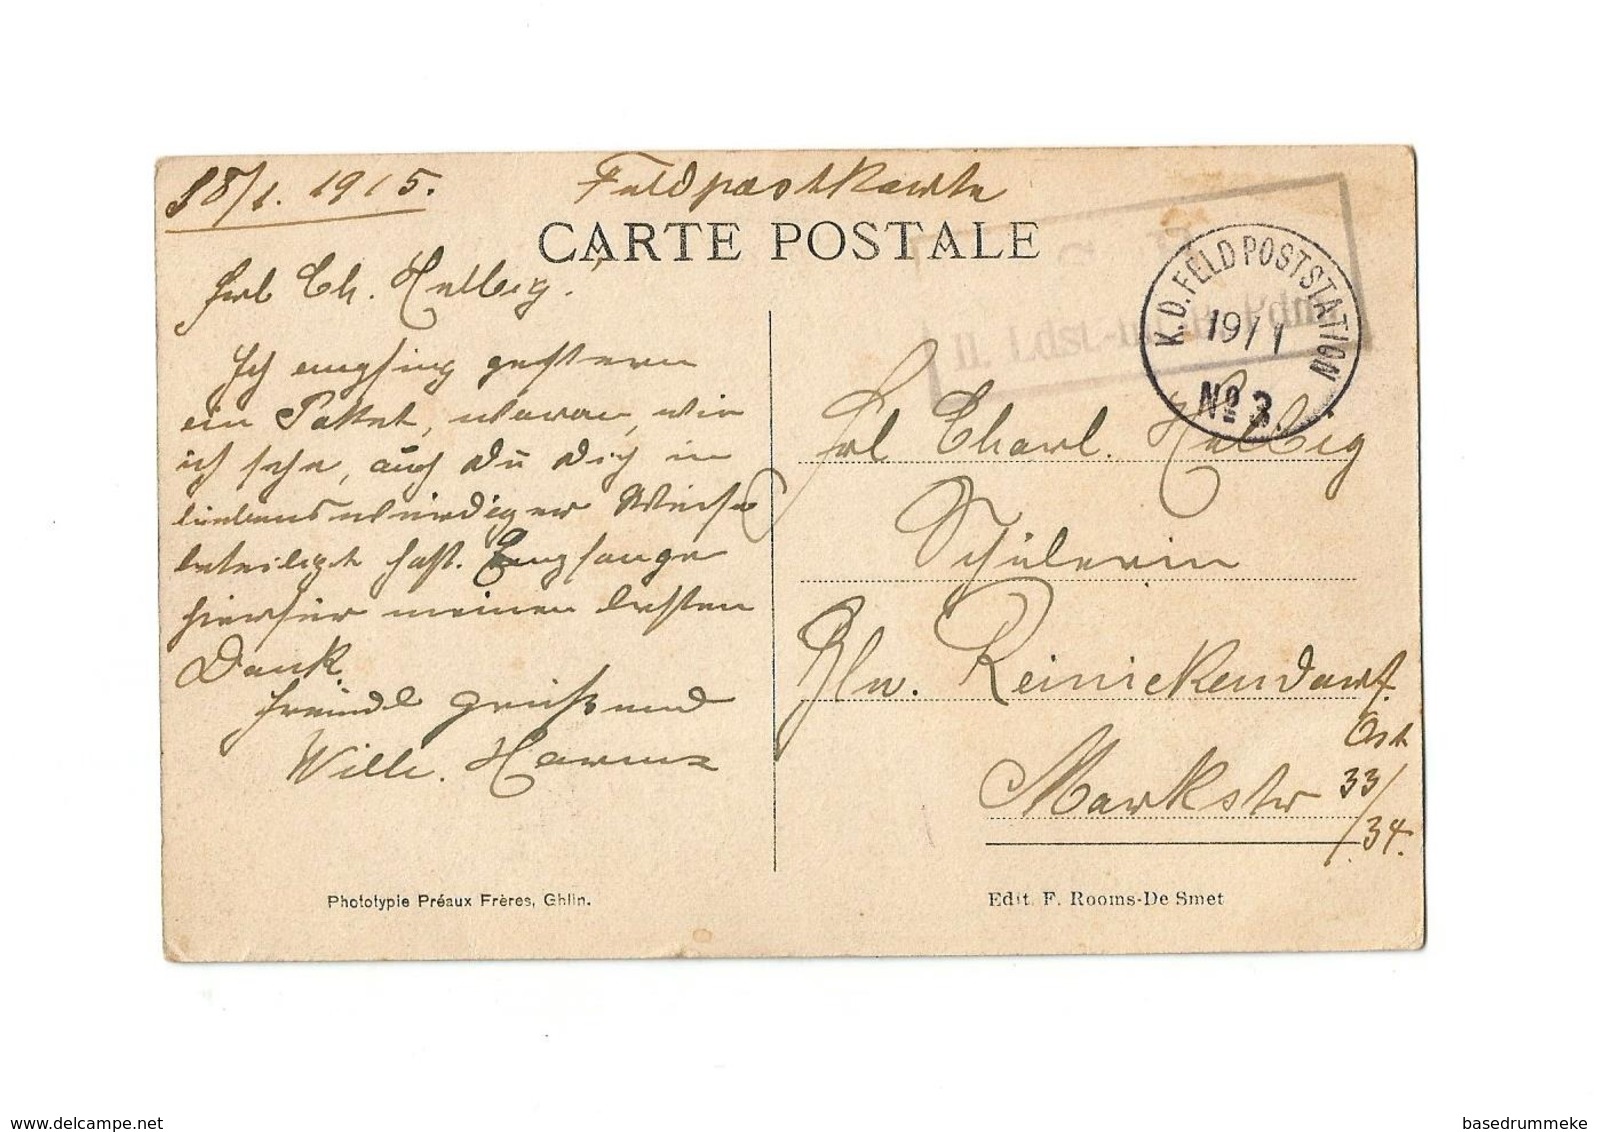 18/1. 1915. Feldpostkarte
CARTE POSTALE
Frl Ch. Helbig.
Ich empfing gestern
ein Paket, woran, wie
ich sehe, auch Du Dich in
liebenswürdiger Weise
beteiligt hast. Empfange
hierfür meinen besten
Dank.
Freundl grüßend
Willi. Harms
S. B.
II. Ldst.-Inf. Pdm
K. D. FELDPOSTSTATION
19/1
No 3
Frl Charl. Helbig
Schülerin
Bln. Reinickendorf
Ost
Markstr 33/
34.
Phototypie Préaux Frères, Ghlin.
Edit. F. Rooms-De Smet
www.delcampe.net
basedrummeke